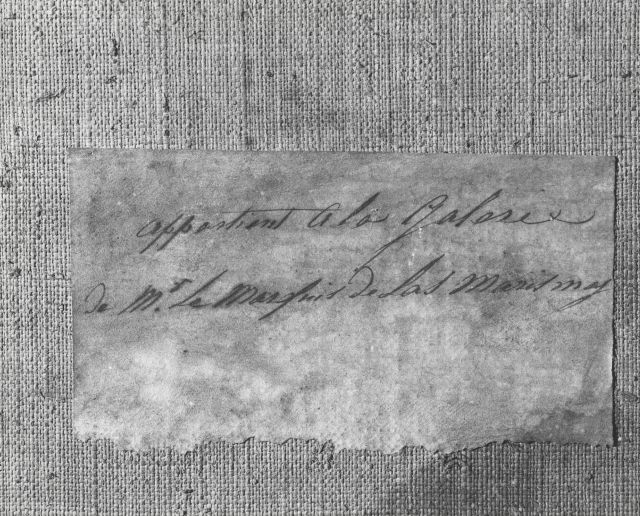 appartient a la Galarie
de Mr. Le Marquis de Las Marismas